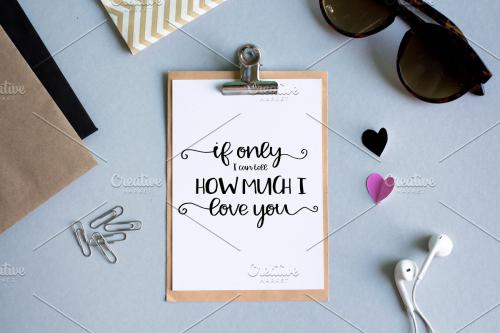 if only
I can tell
HOW MUCH I
love you
Creative
MARKET
Creative
MARKET
Creative
MARKET
Creative
MARKET
Creative
MARKET
Creative
MARKET